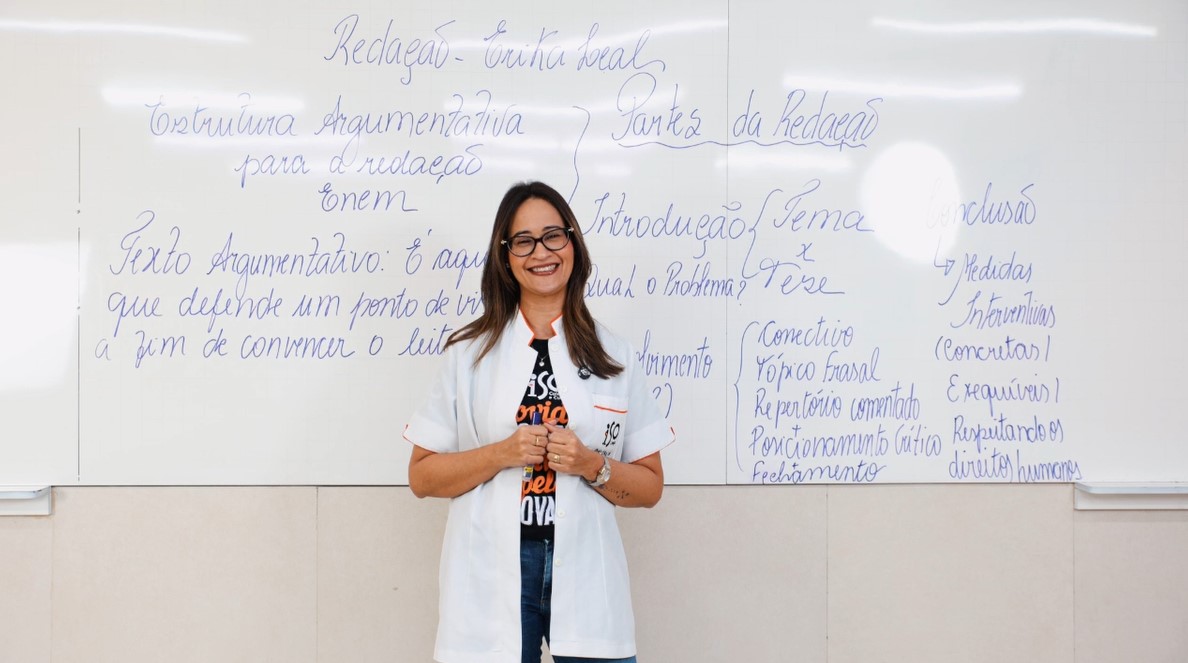 Redação - Erika Leal
Estrutura Argumentativa
para a redação
Enem
Texto Argumentativo: É
que defende um ponto de
a fim de convencer o
Partes da Redação
Introdução
Qual o Problema?
Tema
x
Tese
Conectivo
Tópico Frasal
Repertório comentado
Posicionamento Crítico
Fechamento
Conclusão
Medidas
Interventivas
(Concretas/
Exequíveis/
Respeitando os
direitos humanos
iso